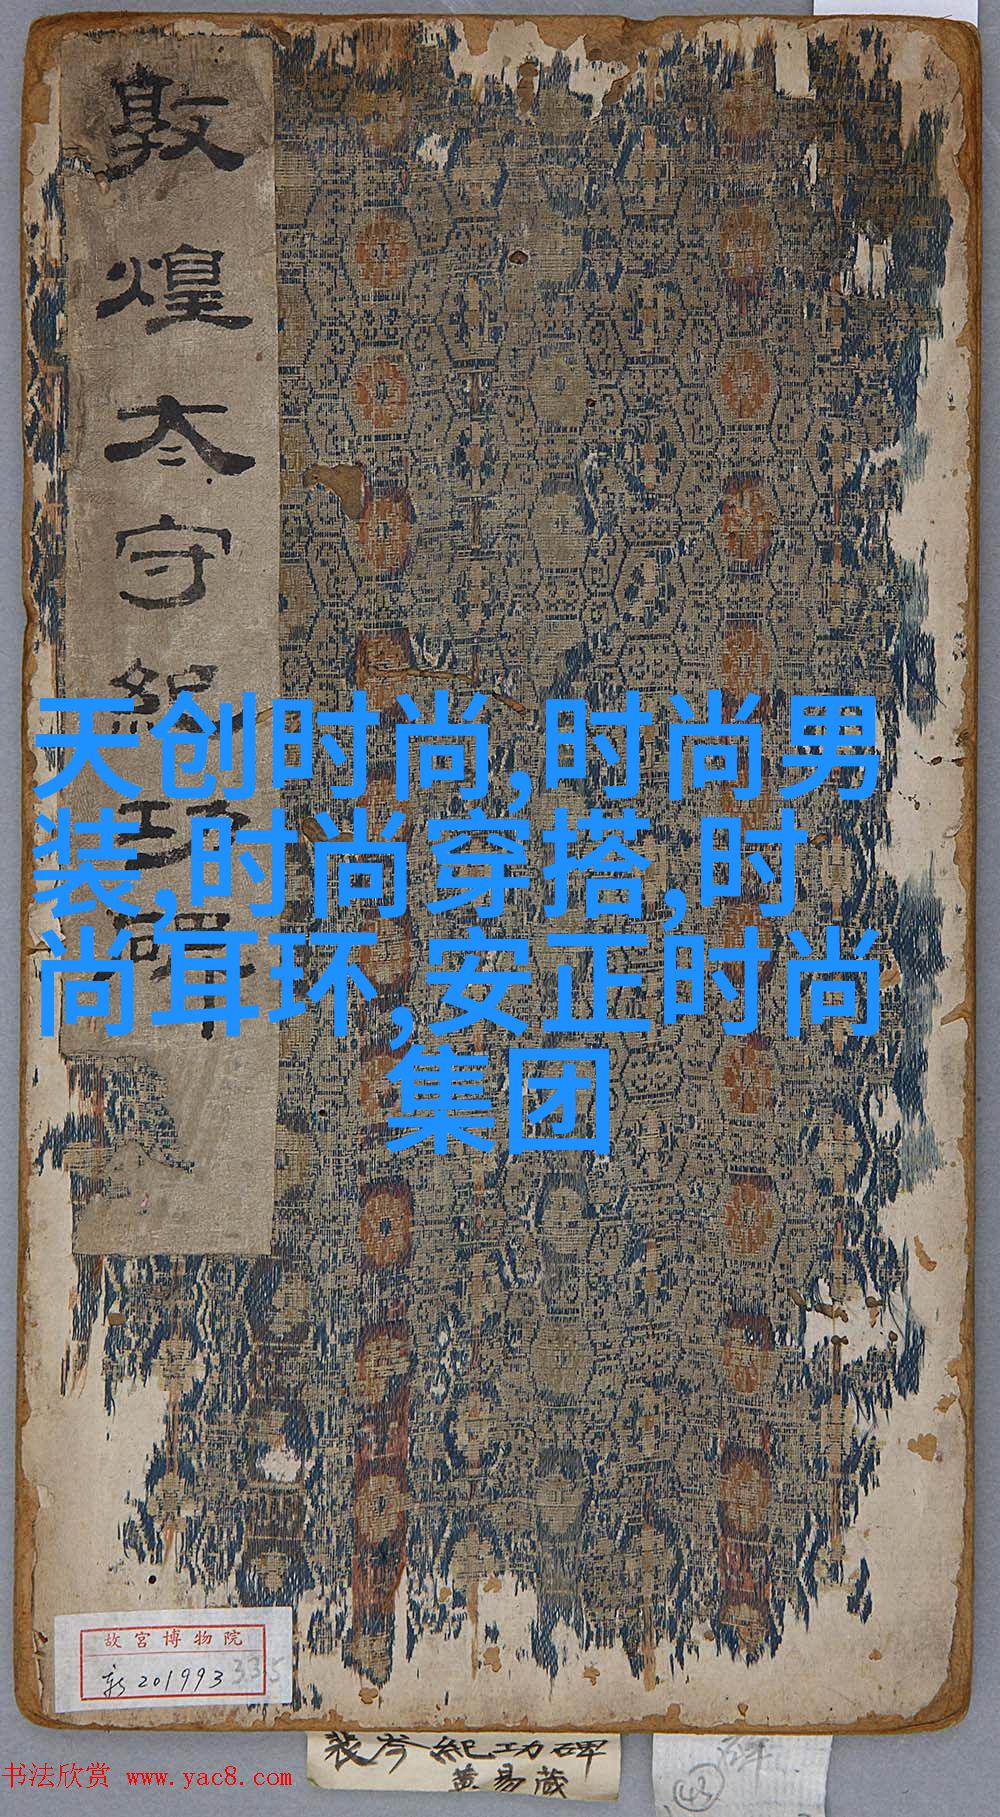 敦煌太守紀功碑
天创时尚,时尚男
装,时尚穿搭,时
尚耳环,安正时尚
集团
故宫博物院
新201993
335
裴岑紀功碑
黄易藏
43
书法欣赏 www.yac8.com